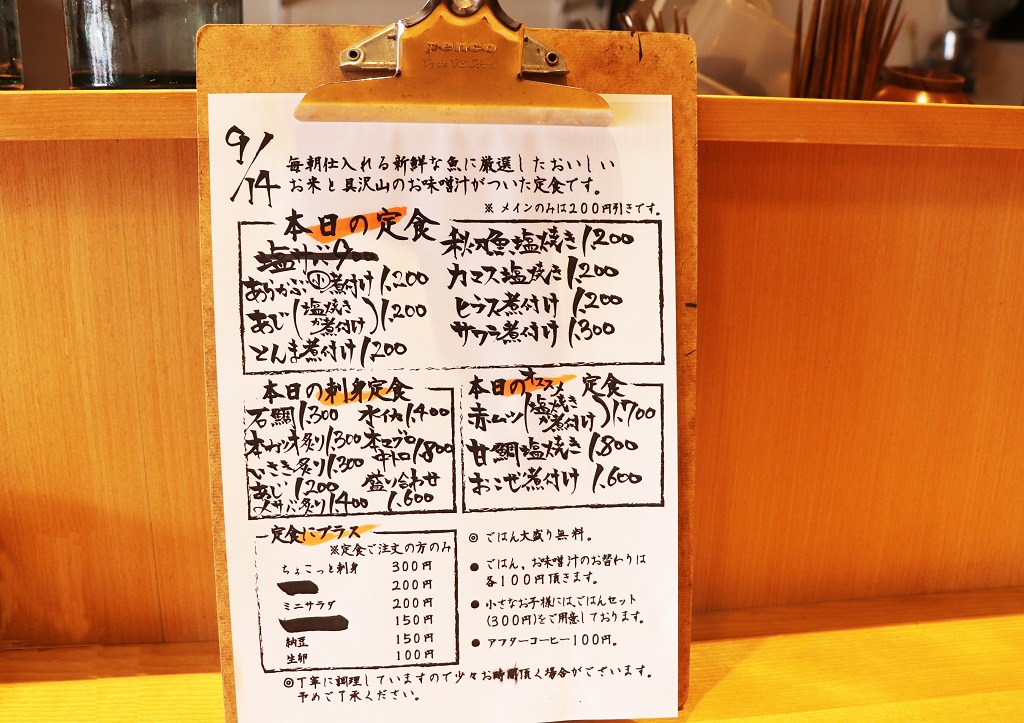 penco
9/14
毎朝仕入れる新鮮な魚に厳選したおいしい
お米と具沢山のお味噌汁がついた定食です。
※ メインのみは200円引きです。
本日の定食
塩サバ 900
あらかぶ小煮付け 1,200
あじ(塩焼きか煮付け) 1,200
とんま煮付け 1,200
秋刀魚塩焼き 1,200
カマス塩焼き 1,200
ヒラス煮付け 1,200
サワラ煮付け 1,300
本日の刺身定食
石鯛 1,300
本カツオ炙り 1,300
いさき炙り 1,300
あじ 1,200
〆サバ炙り 1,400
水イカ 1,400
本マグロ中トロ 1,800
盛り合わせ 1,600
本日のオススメ定食
赤ムツ(塩焼きか煮付け) 1,700
甘鯛塩焼き 1,800
おこぜ煮付け 1,600
定食にプラス
※定食ご注文の方のみ
ちょこっと刺身 300円
200円
ミニサラダ 200円
150円
納豆 150円
生卵 100円
◎ ごはん大盛り無料。
● ごはん、お味噌汁のお替わりは
各100円頂きます。
● 小さなお子様には、ごはんセット
(300円)をご用意しております。
● アフターコーヒー100円。
◎丁寧に調理していますので少々お時間頂く場合がございます。
予めご了承ください。